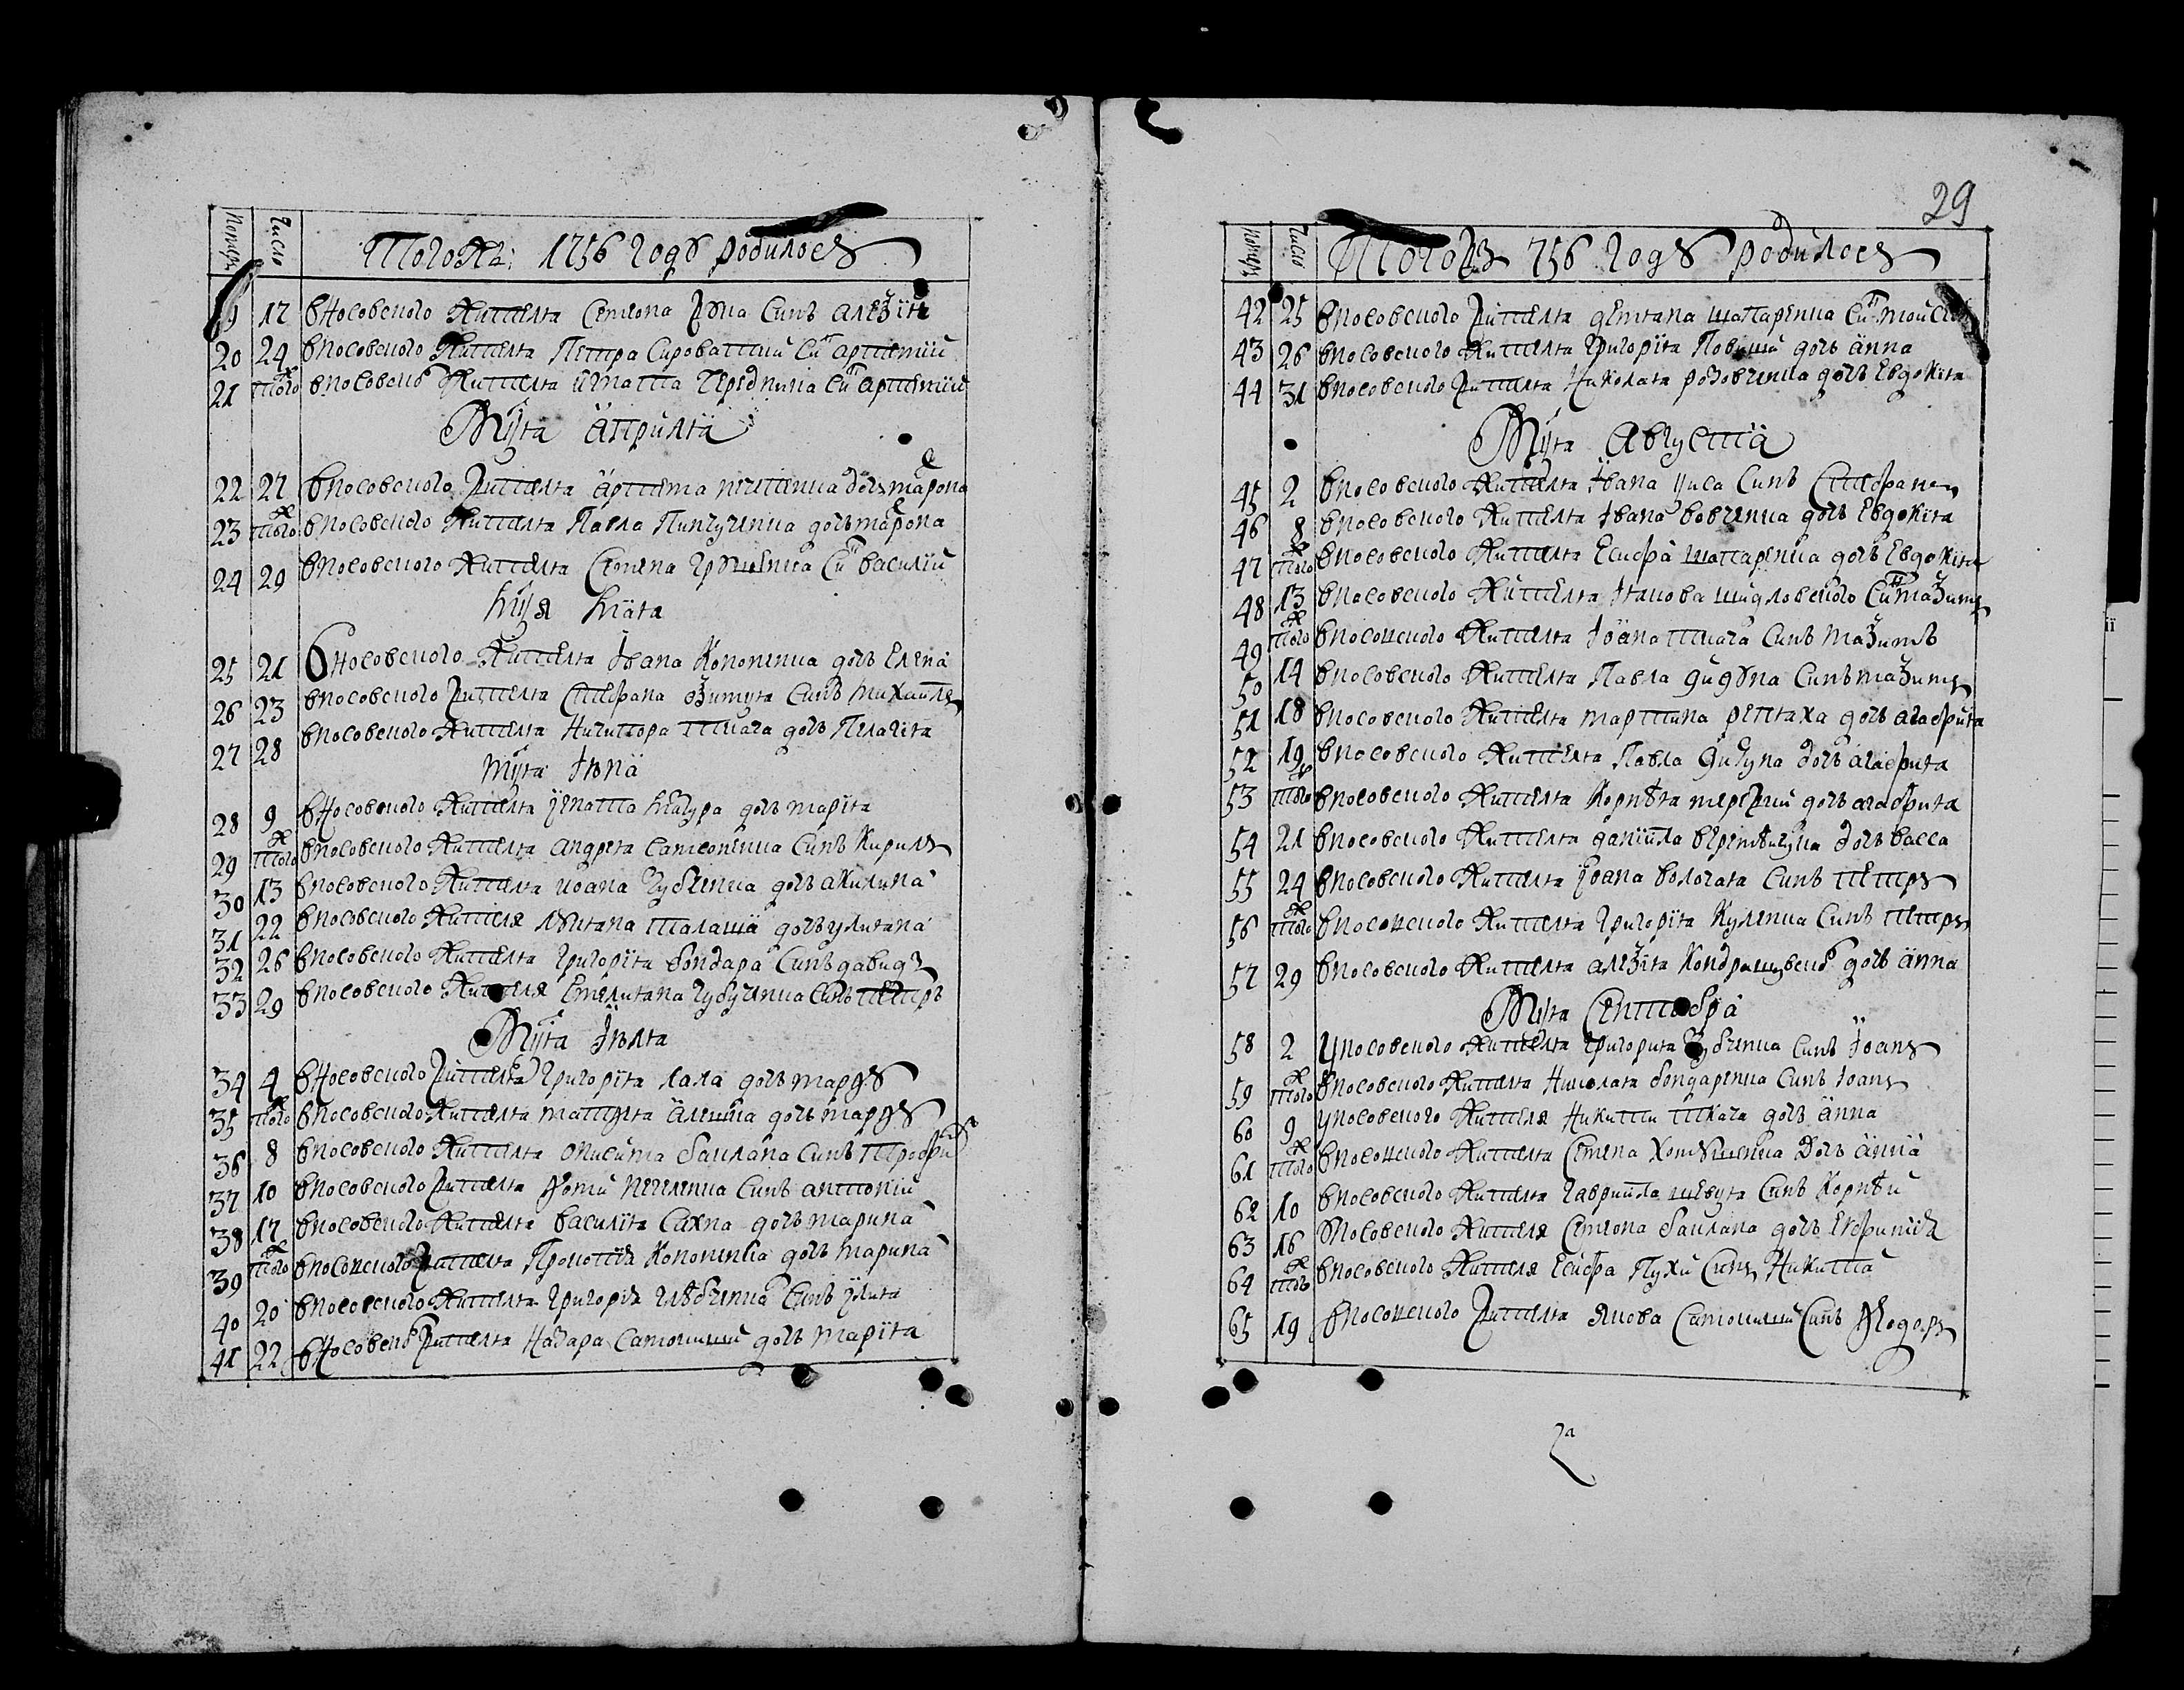 номеръ число Тогожъ: 1756 году родилося
19 17 В Носовского жителя Семена Жука Синъ алеѯій
20 24 В носовского жителя Петра Сироватки Синъ артемій
21 того ж В носовского жителя игната Середника Синъ артемій
Мцѧ Априля
22 27 В носовского жителя артема дочъ марона
23 того ж В носовского жителя Павла Пинчученка дочъ марона
24 29 В носовского жителя Семена Синъ василій
Мцѧ Маѧ
25 21 В носовского жителя Ивана Кононенка дочъ Елена
26 23 В носовского жителя Стефана Синъ михаилъ
27 28 В носовского жителя Ничипора ткача дочъ Пелагія
Мцѧ Июня
28 9 В Носовского жителя игната мазура дочъ марія
29 того ж В носовского жителя андрея Самсоненка Синъ Кирилъ
30 13 В носовского жителя иоана Чубченка дочъ акилина
31 22 В носовского жителя лукияна талаша дочъ улияна
32 26 В носовского жителя григорія бондара Синъ давидъ
33 29 В носовского жителя Емелияна Синъ петръ
Мцѧ Июля
34 4 В Носовского жителя григорія лала дочъ марфа
35 того ж В носовского жителя матфея дочъ марфа
36 8 В носовского жителя онисима баклана Синъ трофимъ
37 10 В носовского жителя Ѳоми Синъ антоній
38 17 В носовского жителя василія Сахна дочъ марина
39 того ж В носовского жителя Прокопія Кононенка дочъ марина
40 20 В носовского жителя григорія Синъ
41 22 В Носовского жителя Назара Самокиши дочъ марія
29
номеръ число Тогожъ 756 году родилося
42 25 В носовского жителя демяна шапаренка Синъ моисей
43 26 В носовского жителя григорія дочъ анна
44 31 В носовского жителя Николая дочъ Евдокія
Мцѧ Августа
45 2 В носовского жителя Ивана куса Синъ Стефанъ
46 8 В носовского жителя Ивана вовченка дочъ Евдокія
47 того ж В носовского жителя Есифа шапаренка дочъ Евдокія
48 13 В носовского жителя Якова шидловского Синъ маѯимъ
49 того ж В носовского жителя Иоана ткача Синъ маѯимъ
50 14 В носовского жителя Павла дидука Синъ маѯимъ
51 18 В носовского жителя мартина репяха дочъ агафия
52 19 В носовского жителя Павла дочъ агафия
53 того ж В носовского жителя Корнѣя дочъ агафия
54 21 В носовского жителя даниила дочъ васса
55 24 В носовского жителя иоана Синъ петръ
56 того ж В носовского жителя григорія Куленка Синъ петръ
57 29 В носовского жителя алеѯія дочъ анна
Мцѧ Септебра
58 2 У носовского жителя григория Чубченка Синъ Иоанъ
59 того ж В носовского жителя Николая бондаренка Синъ Иоанъ
60 9 У носовского жителя Никити ткача дочъ анна
61 того ж В носовского жителя Семена Хомушенка дочъ анна
62 10 В носовского жителя гавриила шевця Синъ Корнѣй
63 16 В носовского жителя Семена баклана дочъ
64 того ж В носовского жителя Есифа Пухи Синъ Никита
65 19 В носовского жителя Якова Самокиши Синъ Ѳеодоръ